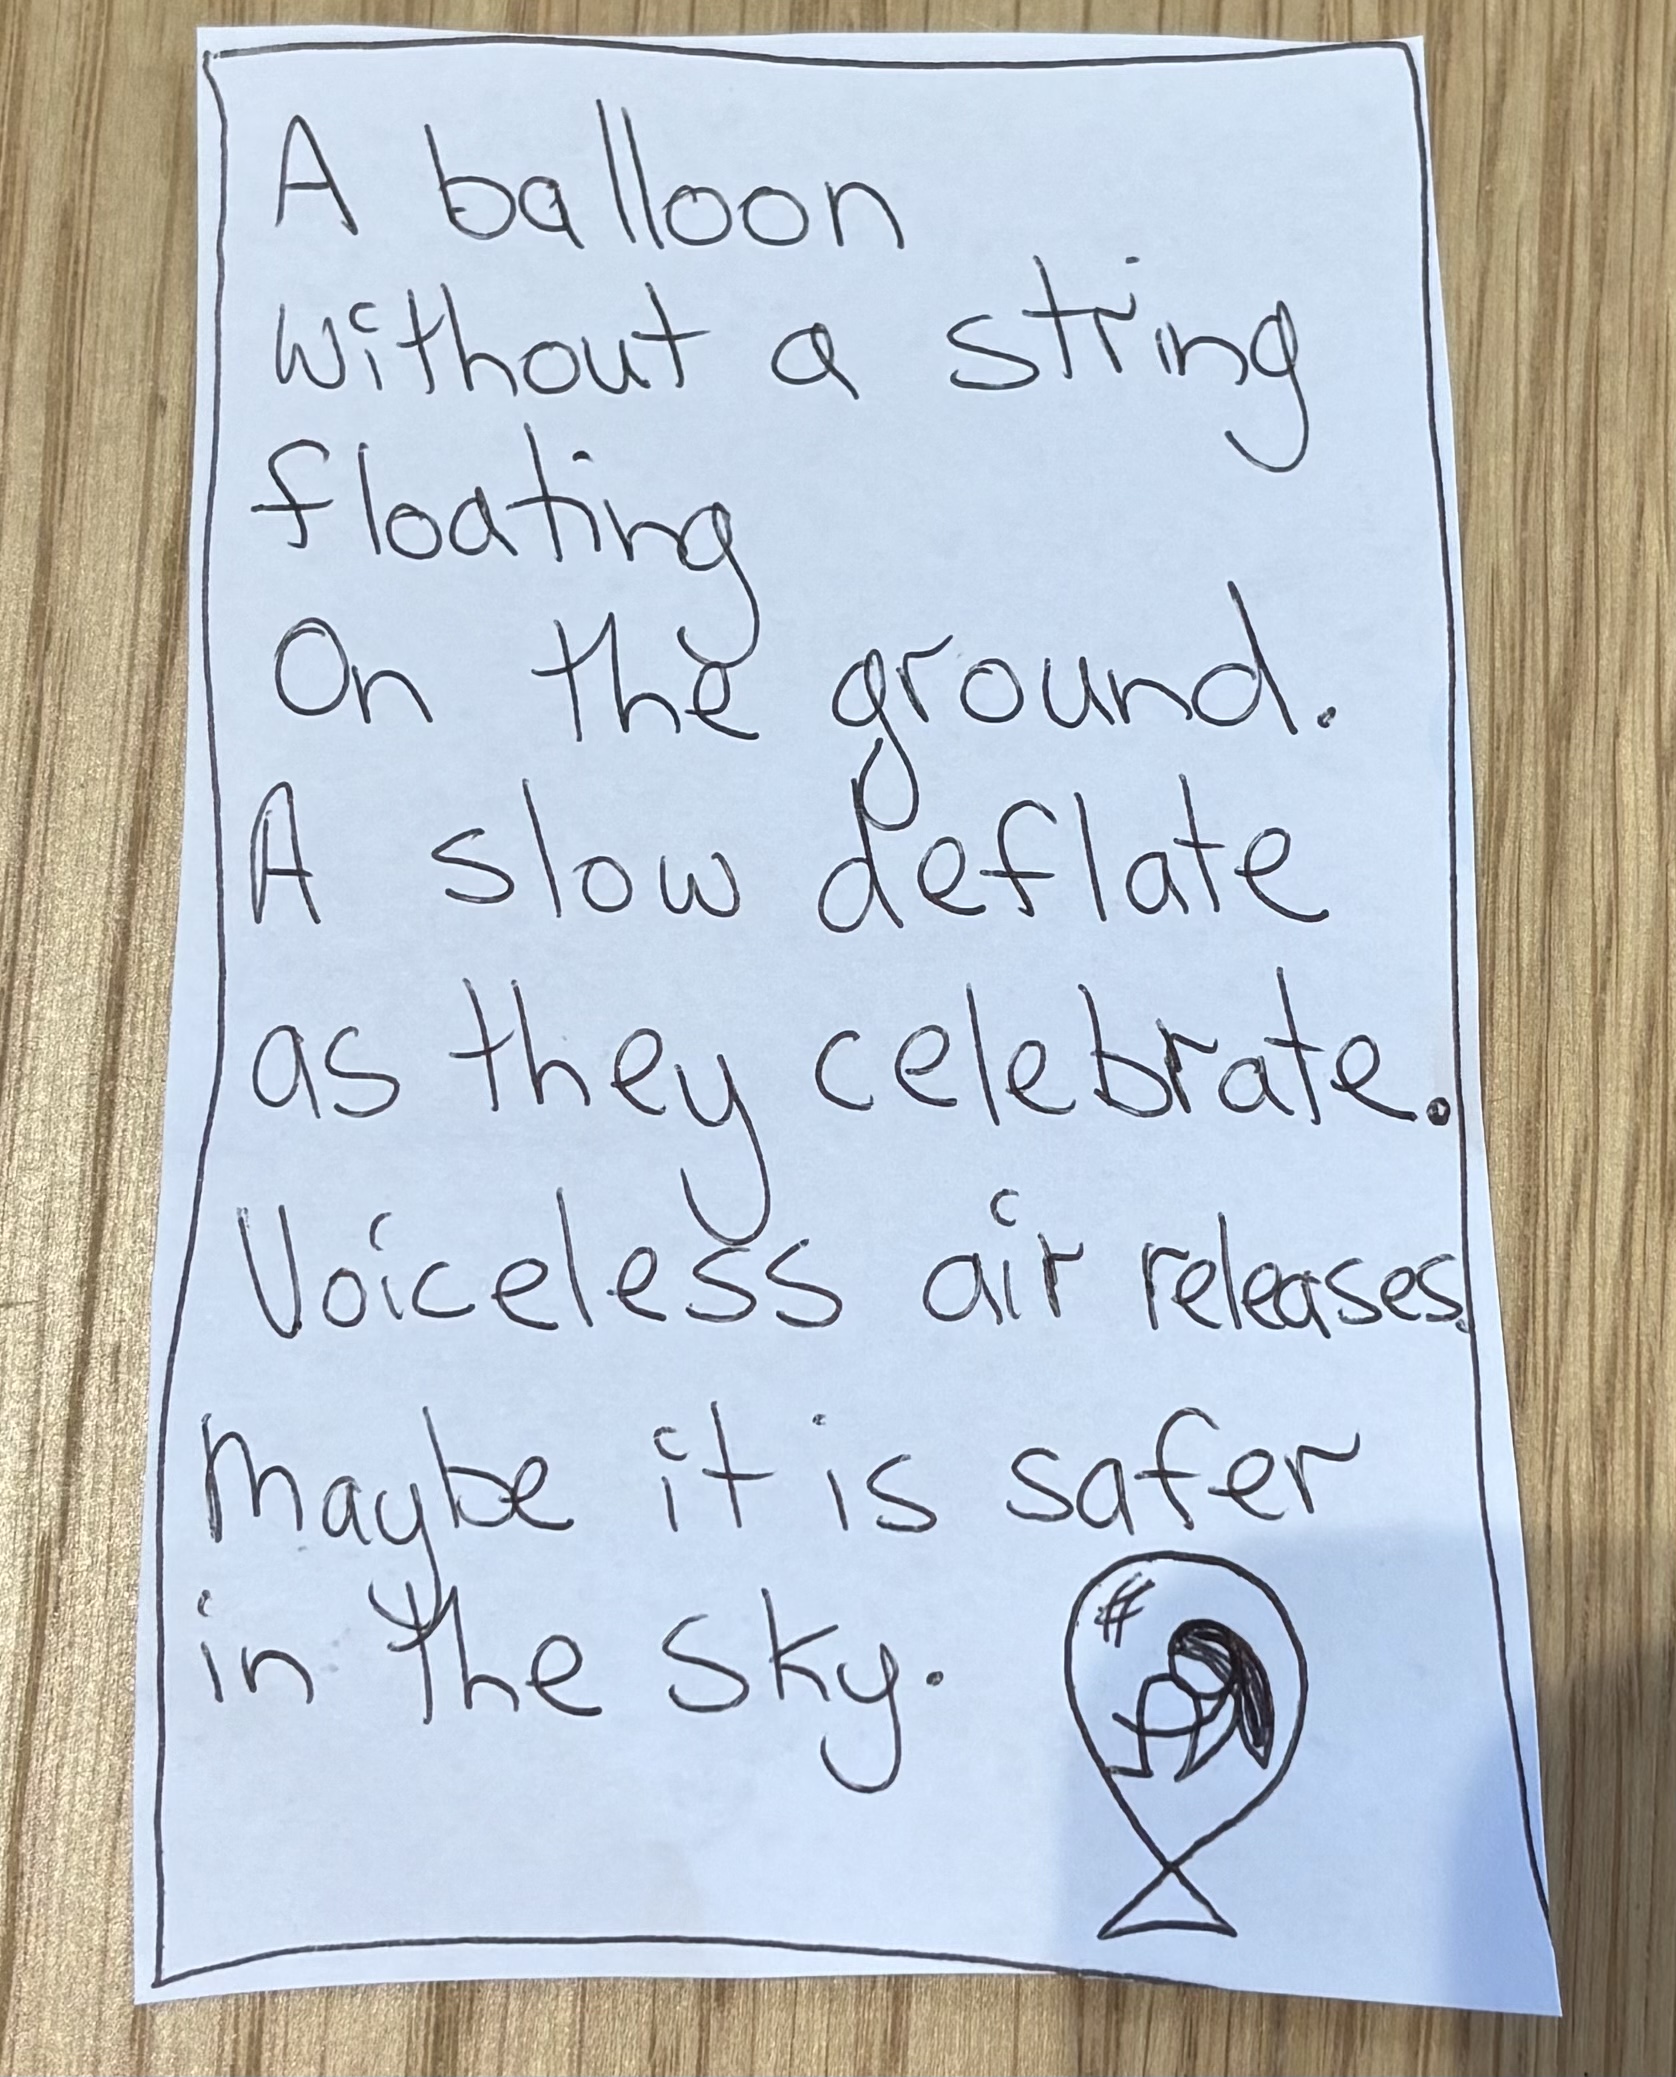 A balloon
without a string
floating
On the ground.
A slow deflate
as they celebrate.
Voiceless air releases.
Maybe it is safer
in the sky.